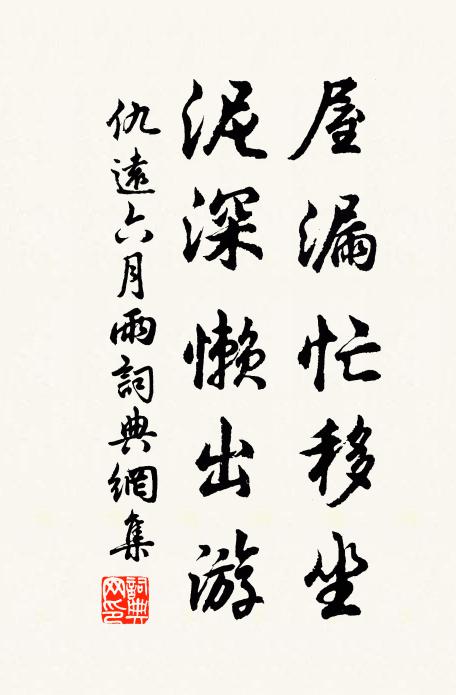 屋漏忙移坐
泥深懒出游
仇遠六月雨詞典網集
詞典網印